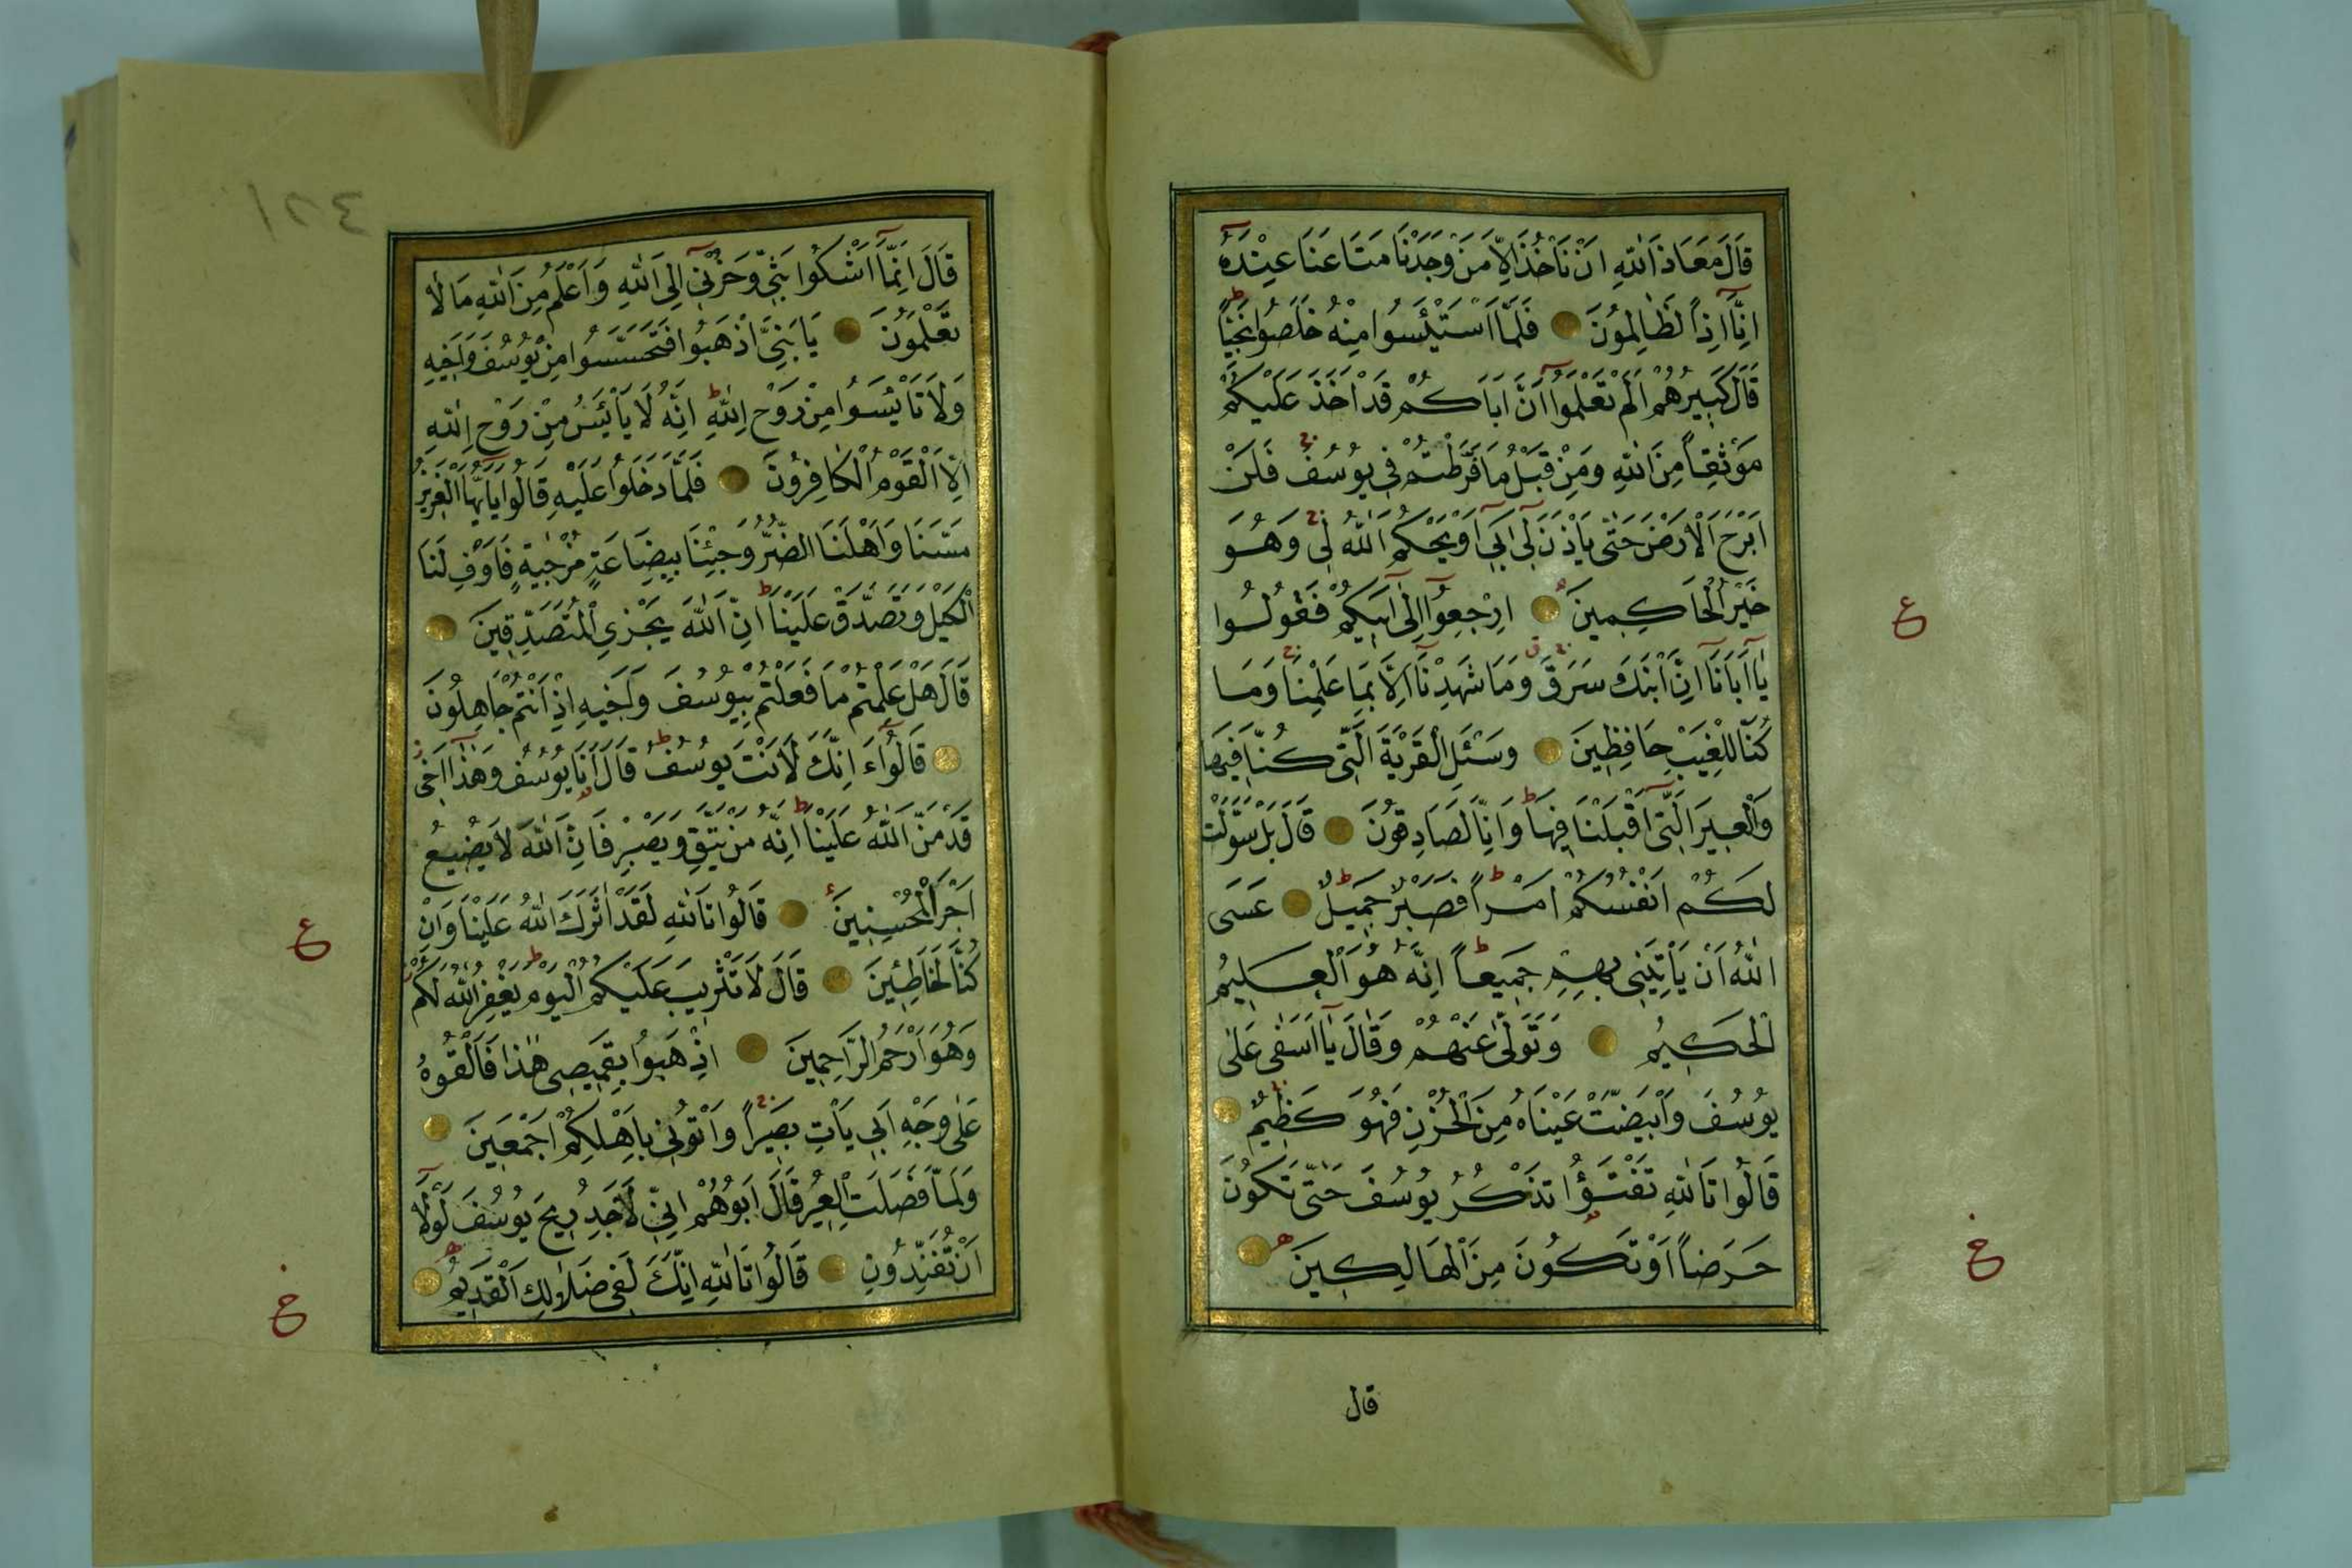 قَالَ مَعَاذَ اللّٰهِ اَنْ نَأْخُذَ اِلَّا مَنْ وَجَدْنَا مَتَاعَنَا عِنْدَهُ
اِنَّا اِذًا لَظَالِمُونَ فَلَمَّا اسْتَيْئَسُوا مِنْهُ خَلَصُوا نَجِيًّا
قَالَ كَبِيرُهُمْ اَلَمْ تَعْلَمُوا اَنَّ اَبَاكُمْ قَدْ اَخَذَ عَلَيْكُمْ
مَوْثِقًا مِنَ اللّٰهِ وَمِنْ قَبْلُ مَا فَرَّطْتُمْ فِي يُوسُفَ فَلَنْ
اَبْرَحَ الْاَرْضَ حَتّٰى يَأْذَنَ لِي اَبِي اَوْ يَحْكُمَ اللّٰهُ لِي وَهُوَ
خَيْرُ الْحَاكِمِينَ اِرْجِعُوا اِلٰى اَبِيكُمْ فَقُولُوا
يَا اَبَانَا اِنَّ ابْنَكَ سَرَقَ وَمَا شَهِدْنَا اِلَّا بِمَا عَلِمْنَا وَمَا
كُنَّا لِلْغَيْبِ حَافِظِينَ وَسْئَلِ الْقَرْيَةَ الَّتِي كُنَّا فِيهَا
وَالْعِيرَ الَّتِي اَقْبَلْنَا فِيهَا وَاِنَّا لَصَادِقُونَ قَالَ بَلْ سَوَّلَتْ
لَكُمْ اَنْفُسُكُمْ اَمْرًا فَصَبْرٌ جَمِيلٌ عَسَى
اللّٰهُ اَنْ يَأْتِيَنِي بِهِمْ جَمِيعًا اِنَّهُ هُوَ الْعَلِيمُ
الْحَكِيمُ وَتَوَلّٰى عَنْهُمْ وَقَالَ يَا اَسَفٰى عَلٰى
يُوسُفَ وَابْيَضَّتْ عَيْنَاهُ مِنَ الْحُزْنِ فَهُوَ كَظِيمٌ
قَالُوا تَاللّٰهِ تَفْتَؤُا تَذْكُرُ يُوسُفَ حَتّٰى تَكُونَ
حَرَضًا اَوْ تَكُونَ مِنَ الْهَالِكِينَ
قال
ع
قَالَ اِنَّمَا اَشْكُوا بَثِّي وَحُزْنِي اِلَى اللّٰهِ وَاَعْلَمُ مِنَ اللّٰهِ مَا لَا
تَعْلَمُونَ يَا بَنِيَّ اذْهَبُوا فَتَحَسَّسُوا مِنْ يُوسُفَ وَاَخِيهِ
وَلَا تَايْئَسُوا مِنْ رَوْحِ اللّٰهِ اِنَّهُ لَا يَايْئَسُ مِنْ رَوْحِ اللّٰهِ
اِلَّا الْقَوْمُ الْكَافِرُونَ فَلَمَّا دَخَلُوا عَلَيْهِ قَالُوا يَا اَيُّهَا الْعَزِيزُ
مَسَّنَا وَاَهْلَنَا الضُّرُّ وَجِئْنَا بِبِضَاعَةٍ مُزْجٰيةٍ فَاَوْفِ لَنَا
الْكَيْلَ وَتَصَدَّقْ عَلَيْنَا اِنَّ اللّٰهَ يَجْزِي الْمُتَصَدِّقِينَ
قَالَ هَلْ عَلِمْتُمْ مَا فَعَلْتُمْ بِيُوسُفَ وَاَخِيهِ اِذْ اَنْتُمْ جَاهِلُونَ
قَالُوا ءَ اِنَّكَ لَاَنْتَ يُوسُفُ قَالَ اَنَا يُوسُفُ وَهٰذَا اَخِي
قَدْ مَنَّ اللّٰهُ عَلَيْنَا اِنَّهُ مَنْ يَتَّقِ وَيَصْبِرْ فَاِنَّ اللّٰهَ لَا يُضِيعُ
اَجْرَ الْمُحْسِنِينَ قَالُوا تَاللّٰهِ لَقَدْ اٰثَرَكَ اللّٰهُ عَلَيْنَا وَاِنْ
كُنَّا لَخَاطِئِينَ قَالَ لَا تَثْرِيبَ عَلَيْكُمُ الْيَوْمَ يَغْفِرُ اللّٰهُ لَكُمْ
وَهُوَ اَرْحَمُ الرَّاحِمِينَ اِذْهَبُوا بِقَمِيصِي هٰذَا فَاَلْقُوهُ
عَلٰى وَجْهِ اَبِي يَأْتِ بَصِيرًا وَاْتُونِي بِاَهْلِكُمْ اَجْمَعِينَ
وَلَمَّا فَصَلَتِ الْعِيرُ قَالَ اَبُوهُمْ اِنِّي لَاَجِدُ رِيحَ يُوسُفَ لَوْلَا
اَنْ تُفَنِّدُونِ قَالُوا تَاللّٰهِ اِنَّكَ لَفِي ضَلَالِكَ الْقَدِيمِ
ع